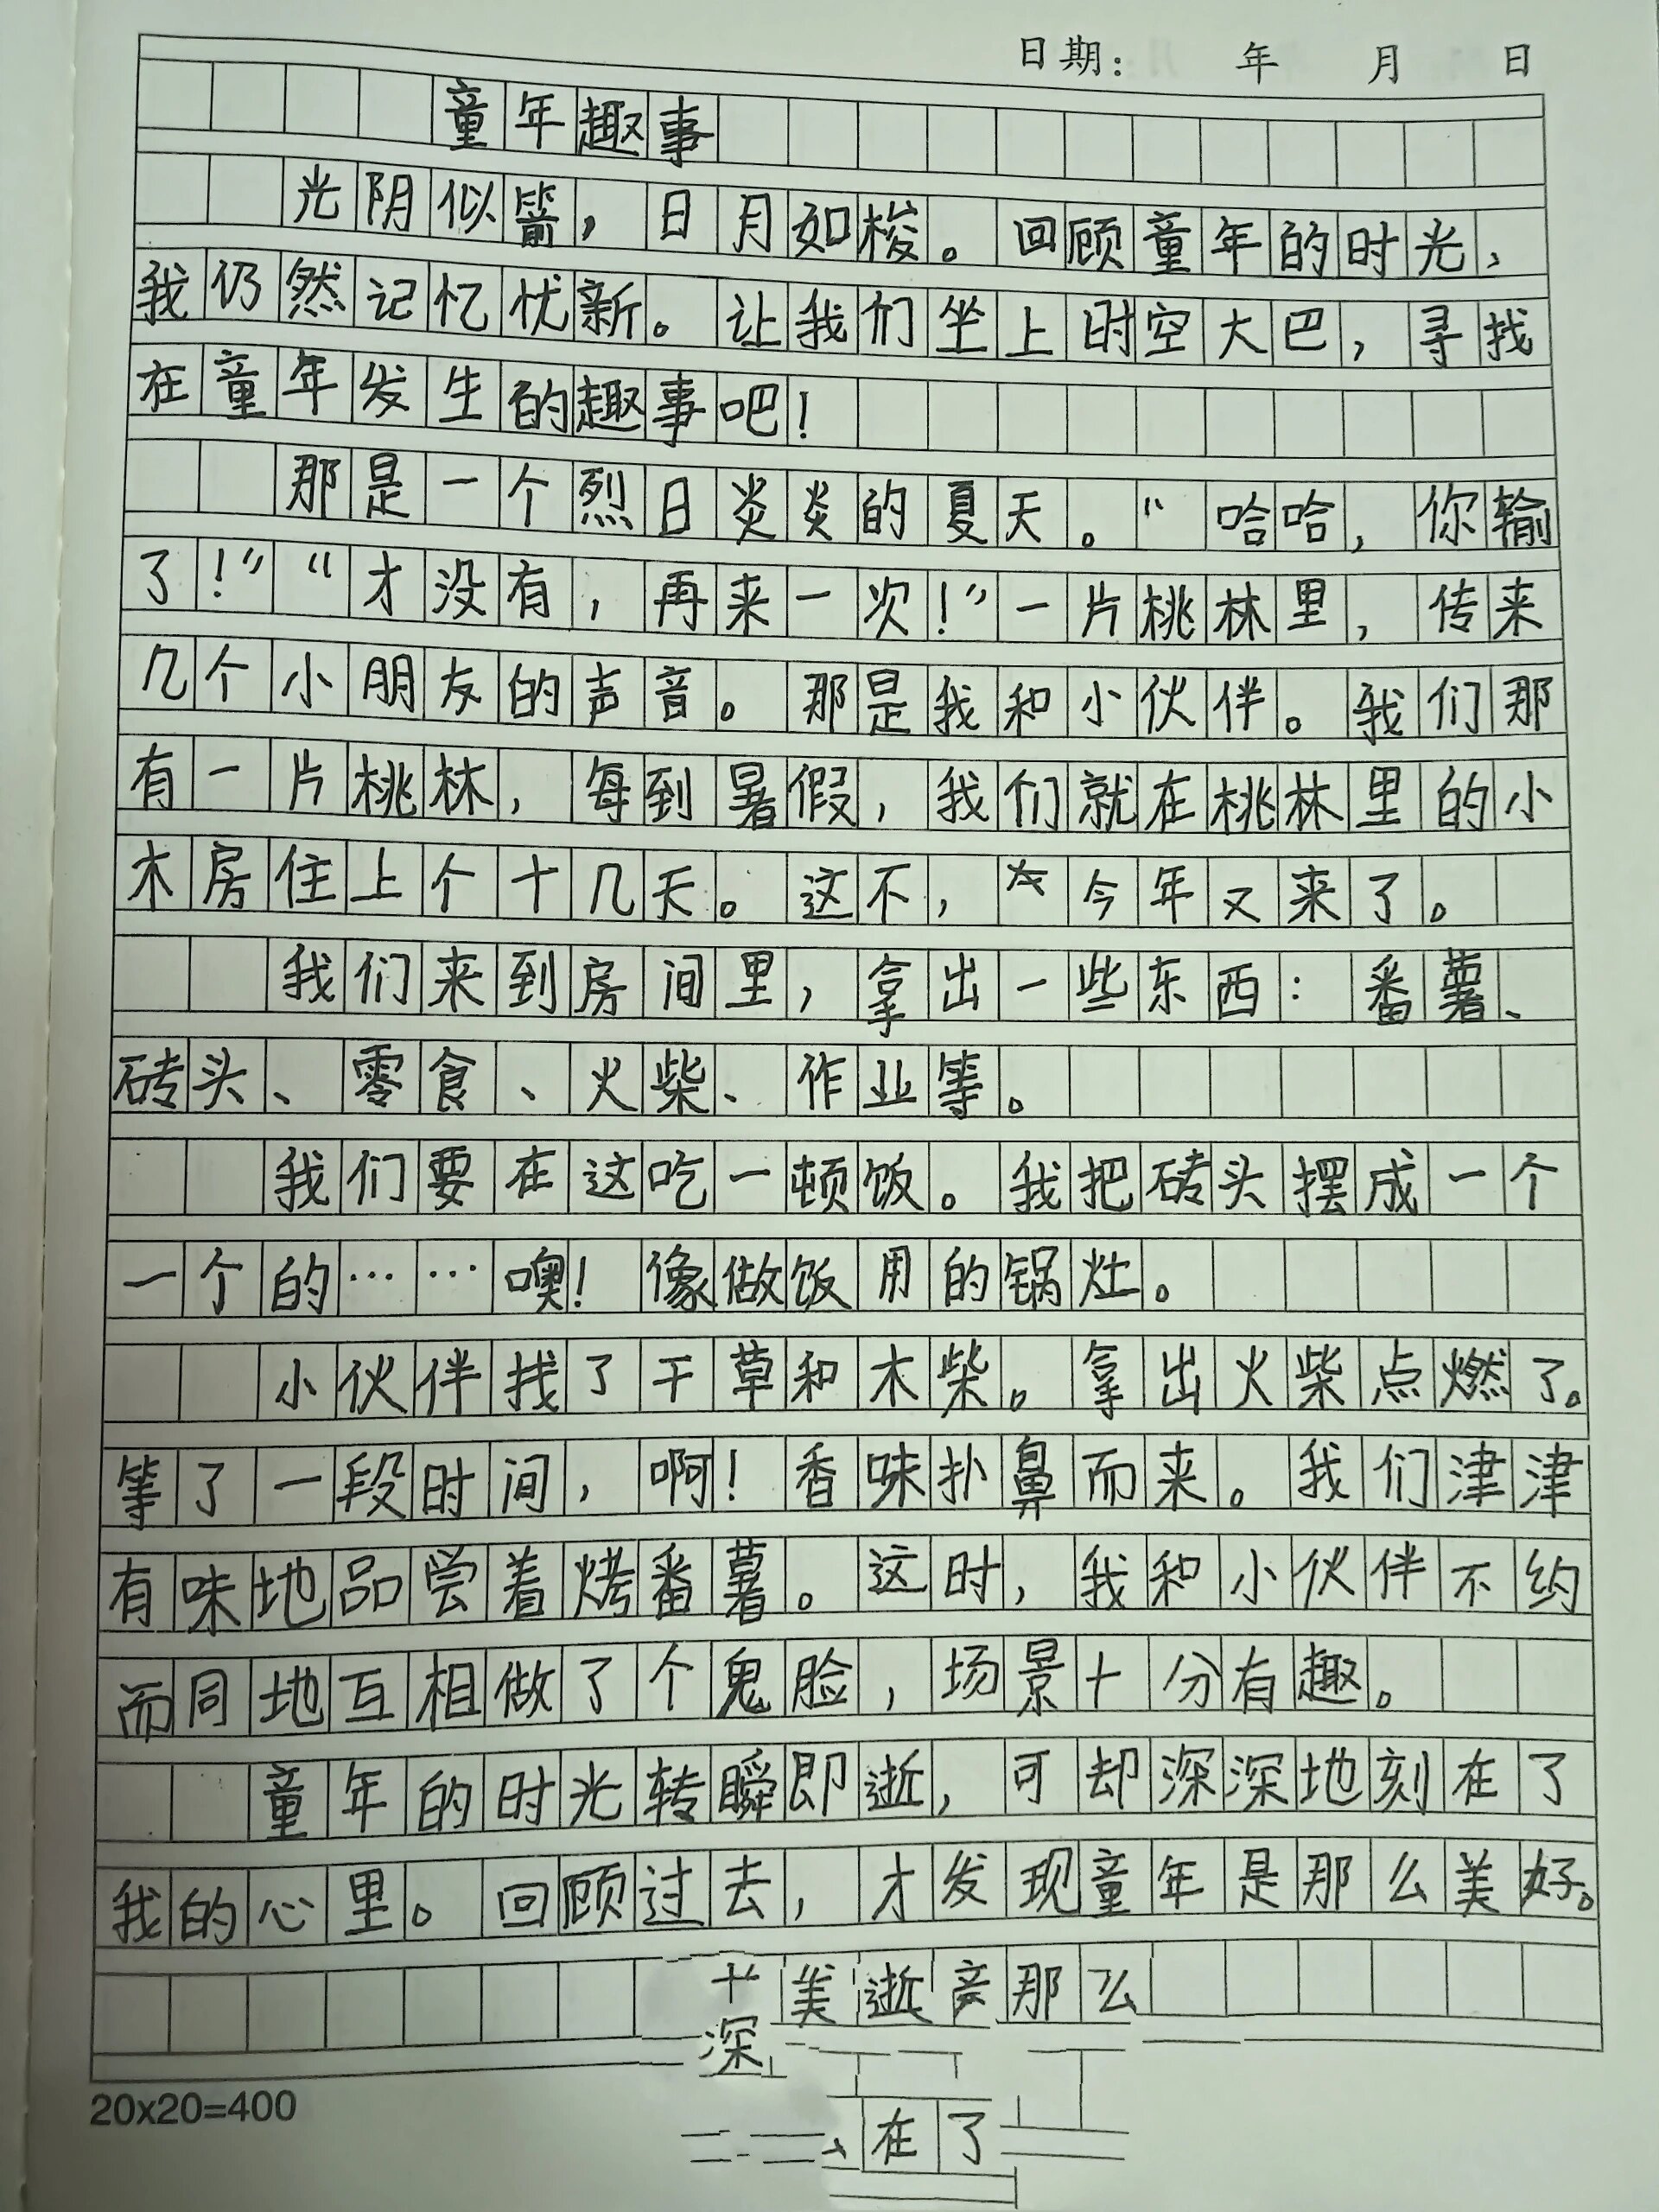 日期： 年 月 日
童年趣事
光阴似箭，日月如梭。回顾童年的时光，
我仍然记忆忧新。让我们坐上时空大巴，寻找
在童年发生的趣事吧！
那是一个烈日炎炎的夏天。“哈哈，你输
了！”“才没有，再来一次！”一片桃林里，传来
几个小朋友的声音。那是我和小伙伴。我们那
有一片桃林，每到暑假，我们就在桃林里的小
木房住上个十几天。这不，今年又来了。
我们来到房间里，拿出一些东西：番薯、
砖头、零食、火柴、作业等。
我们要在这吃一顿饭。我把砖头摆成一个
一个的……噢！像做饭用的锅灶。
小伙伴找了干草和木柴。拿出火柴点燃了。
等了一段时间，啊！香味扑鼻而来。我们津津
有味地品尝着烤番薯。这时，我和小伙伴不约
而同地互相做了个鬼脸，场景十分有趣。
童年的时光转瞬即逝，可却深深地刻在了
我的心里。回顾过去，才发现童年是那么美好。
美逝 那么
深
在了
20x20=400